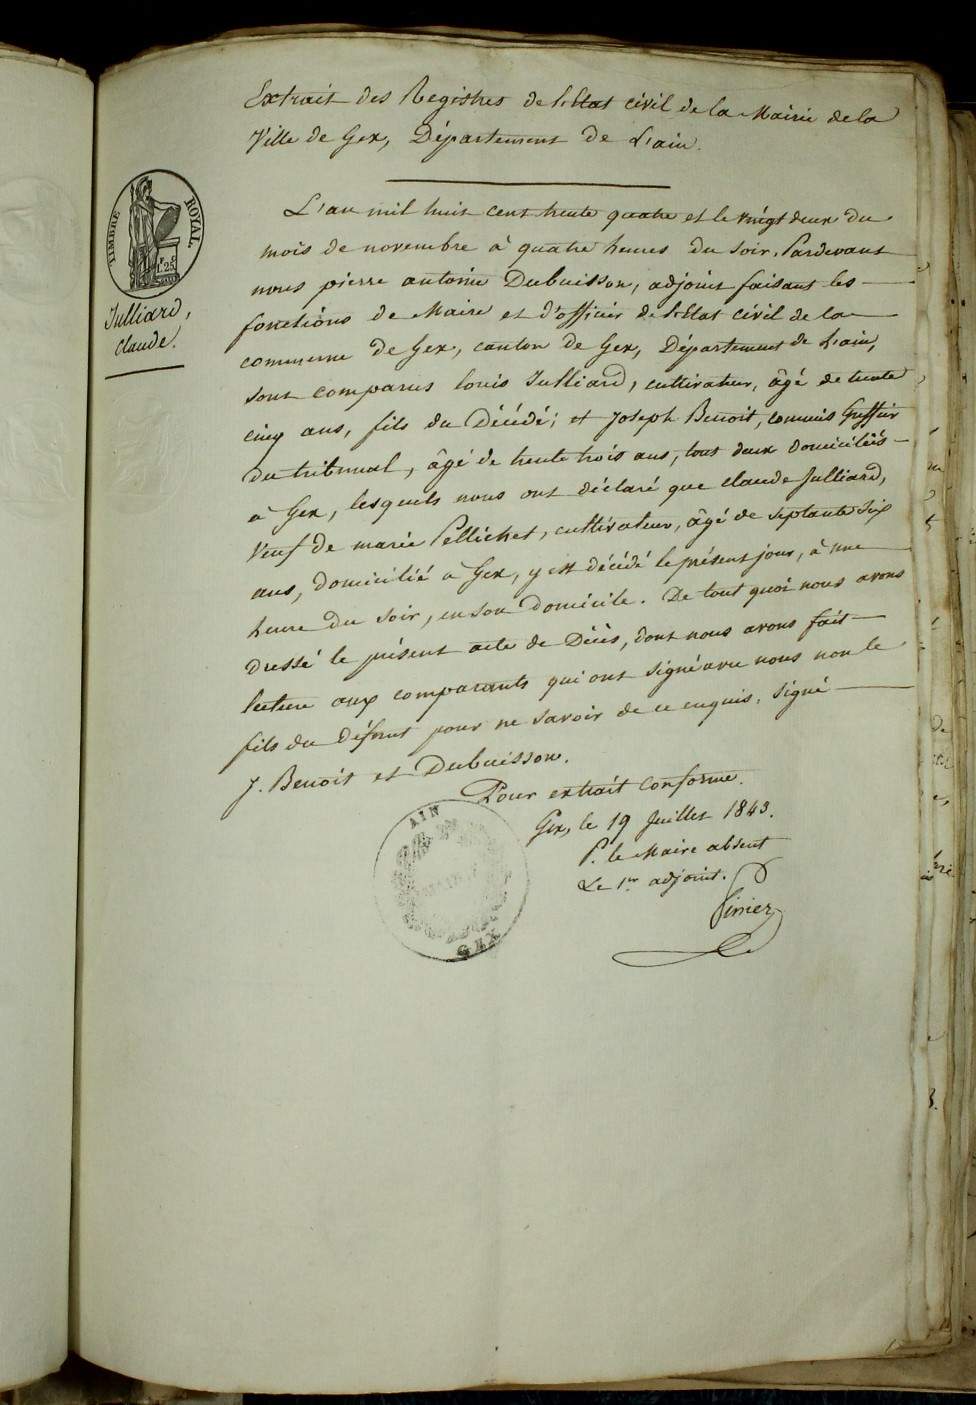 Extrait des Registres de l'Etat civil de la Mairie de la
Ville de Gex, Département de L'ain.
TIMBRE ROYAL
1.25
Julliard,
Claude.
L'an mil huit cent trente quatre et le vingt deux du
mois de novembre à quatre heures du soir. Pardevant
nous pierre antoine Dubuisson, adjoint faisant les
fonctions de Maire et d'officier de l'Etat civil de la
commune de Gex, canton de Gex, Département de L'ain,
sont comparus louis Julliard, cultivateur, âgé de trente
cinq ans, fils du Décédé; et Joseph Benoit, commis Greffier
du tribunal, âgé de trente trois ans, tous deux domiciliés
à Gex, lesquels nous ont déclaré que claude Julliard,
Veuf de marie Pellichet, cultivateur, âgé de septante six
ans, domicilié à Gex, y est décédé le présent jour, à une
heure du soir, en son domicile. De tout quoi nous avons
dressé le présent acte de Décès, dont nous avons fait
lecture aux comparants qui ont signé avec nous non le
fils du défunt pour ne savoir de ce enquis. Signé
J. Benoit et Dubuisson.
Pour extrait conforme.
Gex, le 19 Juillet 1843.
P. le Maire absent
Le 1er adjoint.
AIN
GEX